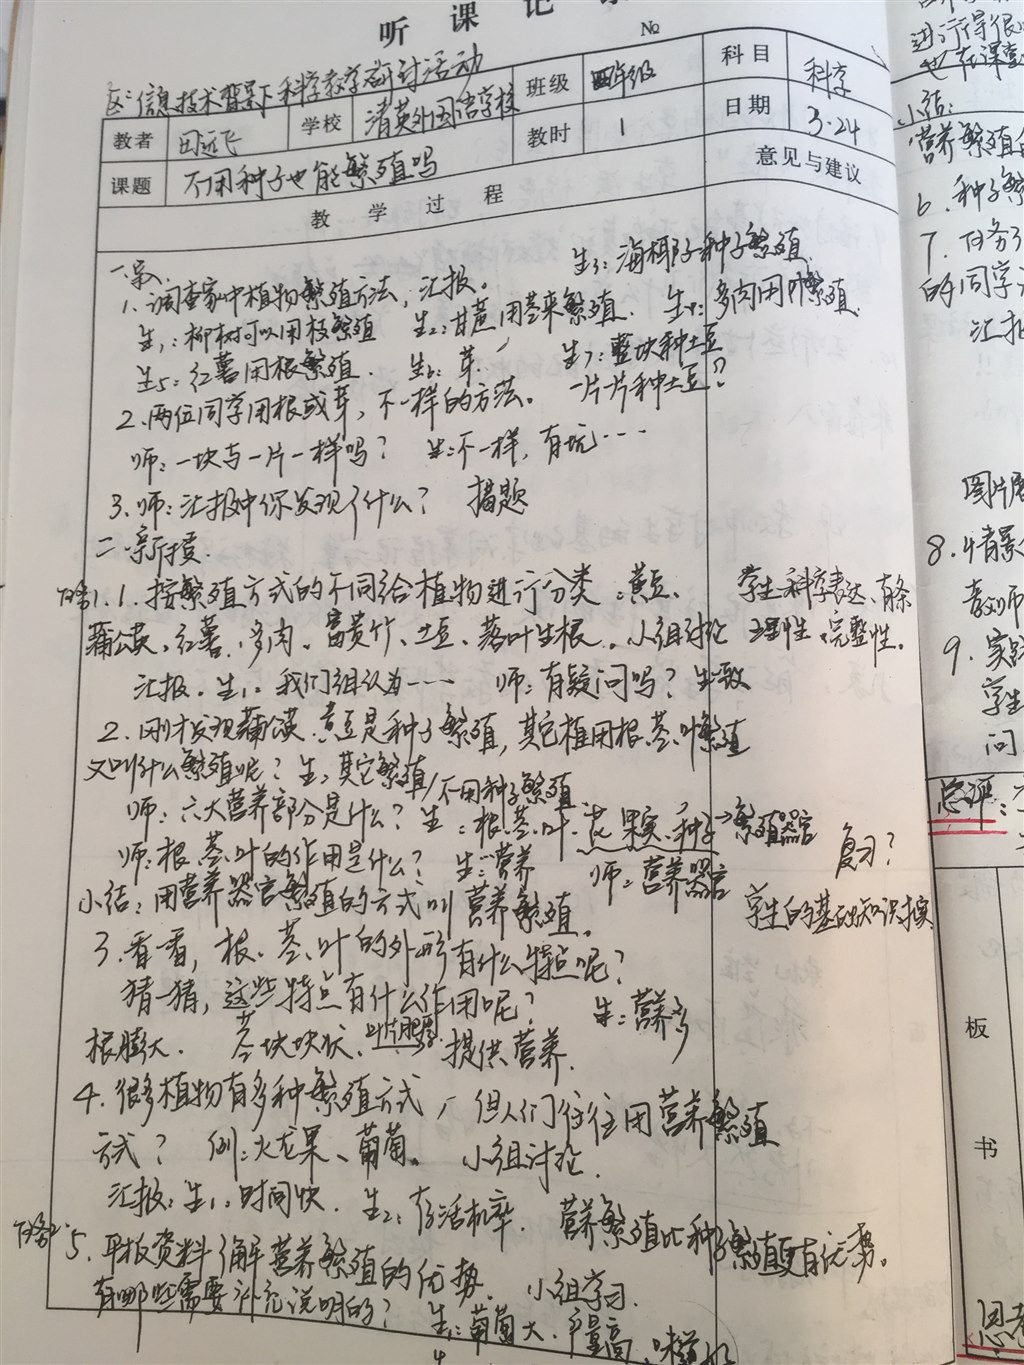 听课记
No
区信息技术背景下科学教学研讨活动
教者 田远飞 学校 清英外国语学校 班级 四年级 科目 科学
教时 1 日期 3.24
课题 不用种子也能繁殖吗
教学过程 意见与建议
一、
1.调查家中植物繁殖方法,汇报。 生3:海椰子种子繁殖
生1:柳树可以用枝繁殖 生2:甘蔗用茎来繁殖. 生4:多肉用叶繁殖.
生5:红薯用根繁殖. 生6:芽. 生7:整块种土豆
一片片种土豆?
2.两位同学用根或芽,不一样的方法。
师:一块与一片一样吗? 生:不一样,有坑……
3.师:汇报中你发现了什么? 揭题
二、新授.
任务1.1.按繁殖方式的不同给植物进行分类:黄豆、 学生科学表达、有条
蒲公英、红薯、多肉、富贵竹、土豆、落叶生根。小组讨论 理性、完整性。
汇报.生1:我们组认为…… 师:有疑问吗?
2.刚才发现蒲公英、黄豆是种子繁殖,其它植用根、茎、叶繁殖
又叫什么繁殖呢?生:其它繁殖/不用种子繁殖
师:六大营养部分是什么?生:根、茎、叶、花、果实、种子→繁殖器官
师:根、茎、叶的作用是什么? 生:营养 师:营养器官 复习?
小结:用营养器官繁殖的方式叫营养繁殖。 学生的基础知识扎实
3.看看,根、茎、叶的外形有什么特点呢?
猜一猜,这些特点有什么作用呢? 生:营养多
根膨大. 茎块块状、叶片肥厚 提供营养.
4.很多植物有多种繁殖方式,但人们往往用营养繁殖
方式? 例:火龙果、葡萄。 小组讨论.
汇报:生1:时间快. 生2:存活机率. 营养繁殖比种子繁殖更有优势。
任务2:5.平板资料了解营养繁殖的优势. 小组学习.
有哪些需要补充说明的? 生1:葡萄大.产量高.
进行得很
也在课堂
小结:
营养繁殖
6.种子繁
7.任务
的同学
汇报
图片展
8.情景
教师
9.实践
学生
问
总评:
板
书
思考